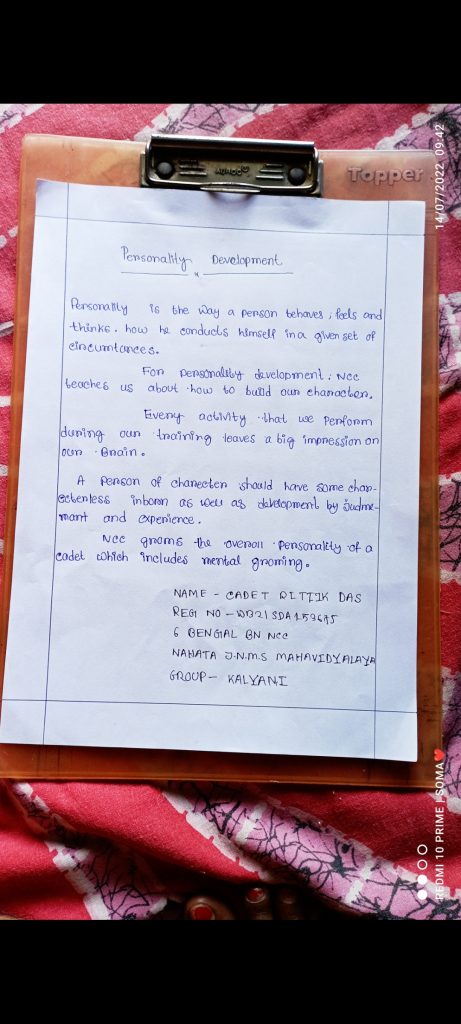 Topper
Personality Development
Personality is the way a person behaves, feels and
thinks. how he conducts himself in a given set of
cincumtances.
For personality development, NCC
teaches us about how to build our characten.
Every activity that we perform
during our training leaves a big impression on
our Brain.
A person of charecten should have some char-
ectenless inborn as well as development by Judme-
mant and experience.
NCC grooms the overall personality of a
cadet which includes mental grooming.
NAME - CADET RITTIK DAS
REG NO - WB21SDA159695
6 BENGIAL BN NCC
NAHATA J.N.M.S MAHAVIDYALAYA
GROUP - KALYANI
14/07/2022 09:42
REDMI 10 PRIME | SOMA❤